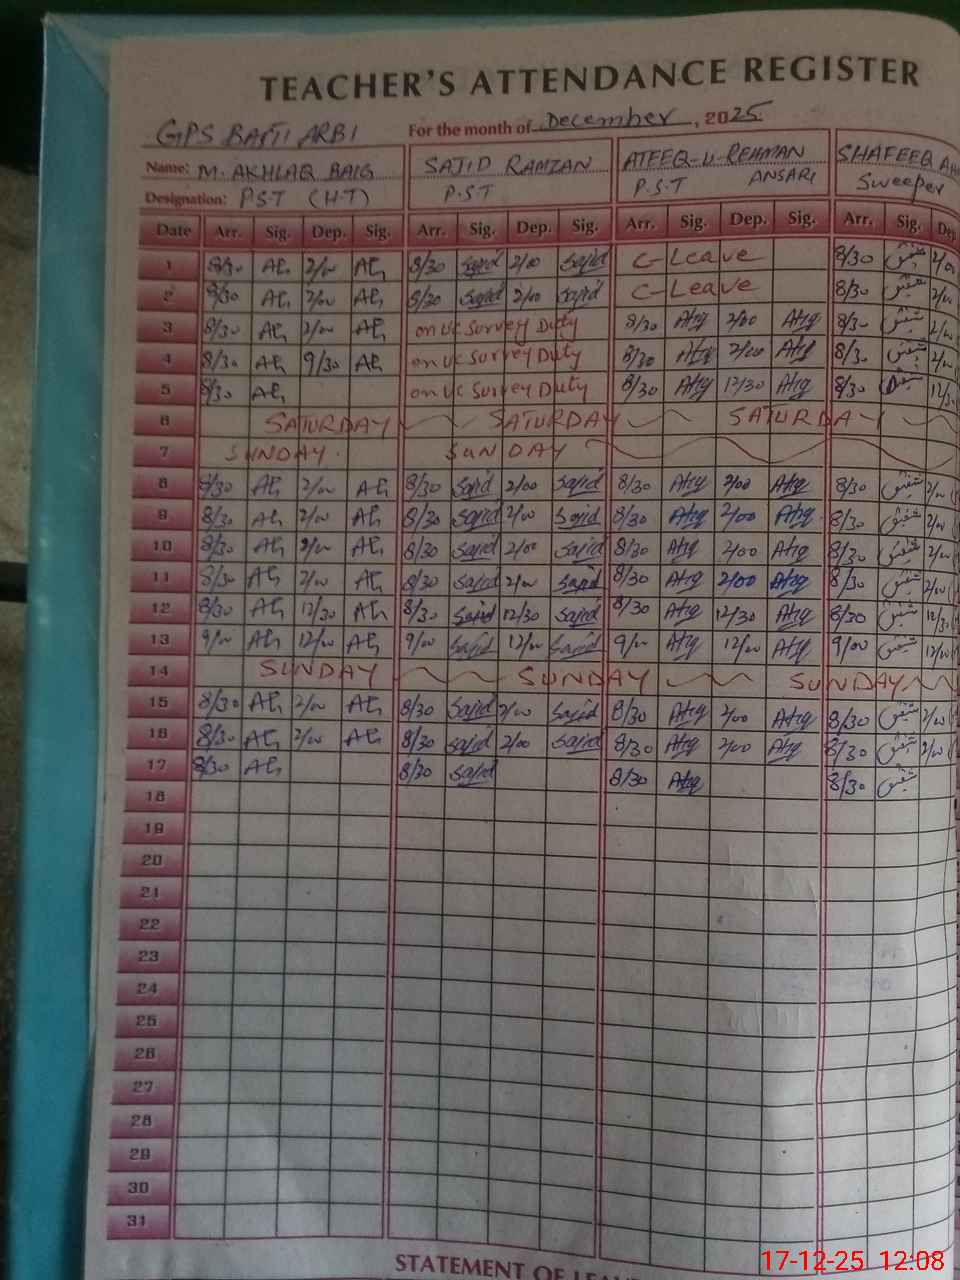 TEACHER'S ATTENDANCE REGISTER
GPS BASTI ARBI For the month of December, 2025
Name: M. AKHLAQ BAIG SAJID RAMZAN ATEEQ-U-REHMAN ANSARI SHAFEEQ
Designation: P.S.T (H.T) P.S.T P.S.T Sweeper
Date Arr. Sig. Dep. Sig. Arr. Sig. Dep. Sig. Arr. Sig. Dep. Sig. Arr. Sig. Dep
1 8/30 2/00 8/30 Sajid 2/00 Sajid C-Leave 8/30 شفیق 2/00
2 8/30 2/00 8/30 Sajid 2/00 Sajid C-Leave 8/30 شفیق 2/00
3 8/30 2/00 on UC Survey Duty 8/30 Atiq 2/00 Atiq 8/30 شفیق 2/00
4 8/30 9/30 on UC Survey Duty 8/30 Atiq 2/00 Atiq 8/30 شفیق 2/00
5 8/30 on UC Survey Duty 8/30 Atiq 12/30 Atiq 8/30 شفیق 12/3
6 SATURDAY SATURDAY SATURDAY
7 SUNDAY. SUNDAY
8 8/30 2/00 8/30 Sajid 2/00 Sajid 8/30 Atiq 2/00 Atiq 8/30 شفیق 2/00
9 8/30 2/00 8/30 Sajid 2/00 Sajid 8/30 Atiq 2/00 Atiq 8/30 شفیق 2/00
10 8/30 2/00 8/30 Sajid 2/00 Sajid 8/30 Atiq 2/00 Atiq 8/30 شفیق 2/00
11 8/30 2/00 8/30 Sajid 2/00 Sajid 8/30 Atiq 2/00 Atiq 8/30 شفیق 2/00
12 8/30 12/30 8/30 Sajid 12/30 Sajid 8/30 Atiq 12/30 Atiq 8/30 شفیق 12/30
13 9/00 12/00 9/00 Sajid 12/00 Sajid 9/00 Atiq 12/00 Atiq 9/00 شفیق 12/00
14 SUNDAY SUNDAY SUNDAY
15 8/30 2/00 8/30 Sajid 2/00 Sajid 8/30 Atiq 2/00 Atiq 8/30 شفیق 2/00
16 8/30 2/00 8/30 Sajid 2/00 Sajid 8/30 Atiq 2/00 Atiq 8/30 شفیق 2/00
17 8/30 8/30 Sajid 8/30 Atiq 8/30 شفیق
18
19
20
21
22
23
24
25
26
27
28
29
30
31
STATEMENT OF LEAVE
17-12-25 12:08